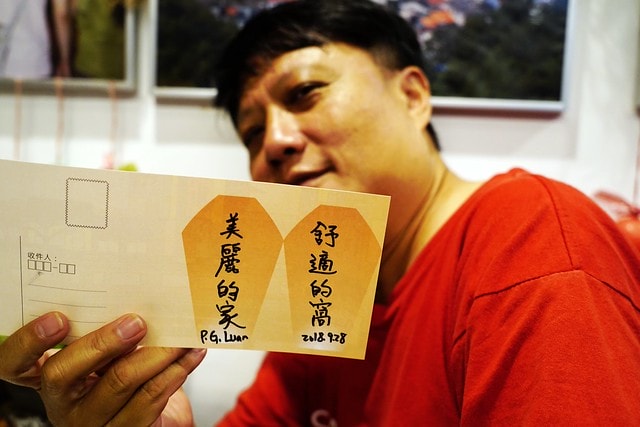 收件人：
美麗的家
P.G. Luan
舒適的窩
2018.9.28